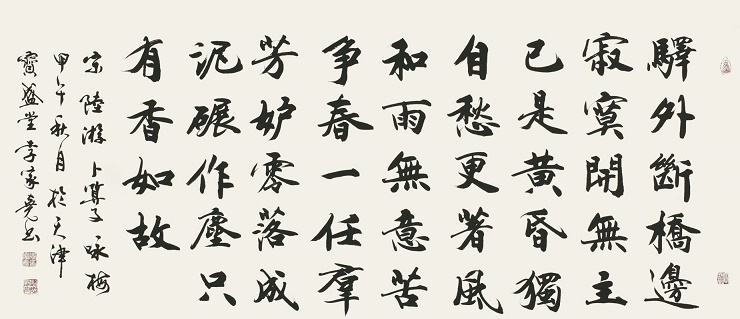 驛外斷橋邊
寂寞開無主
已是黄昏獨
自愁更著風
和雨無意苦
争春一任羣
芳妒零落成
泥碾作塵只
有香如故
宋陸游卜算子咏梅
甲午秋月於天津
盛堂李家尧书